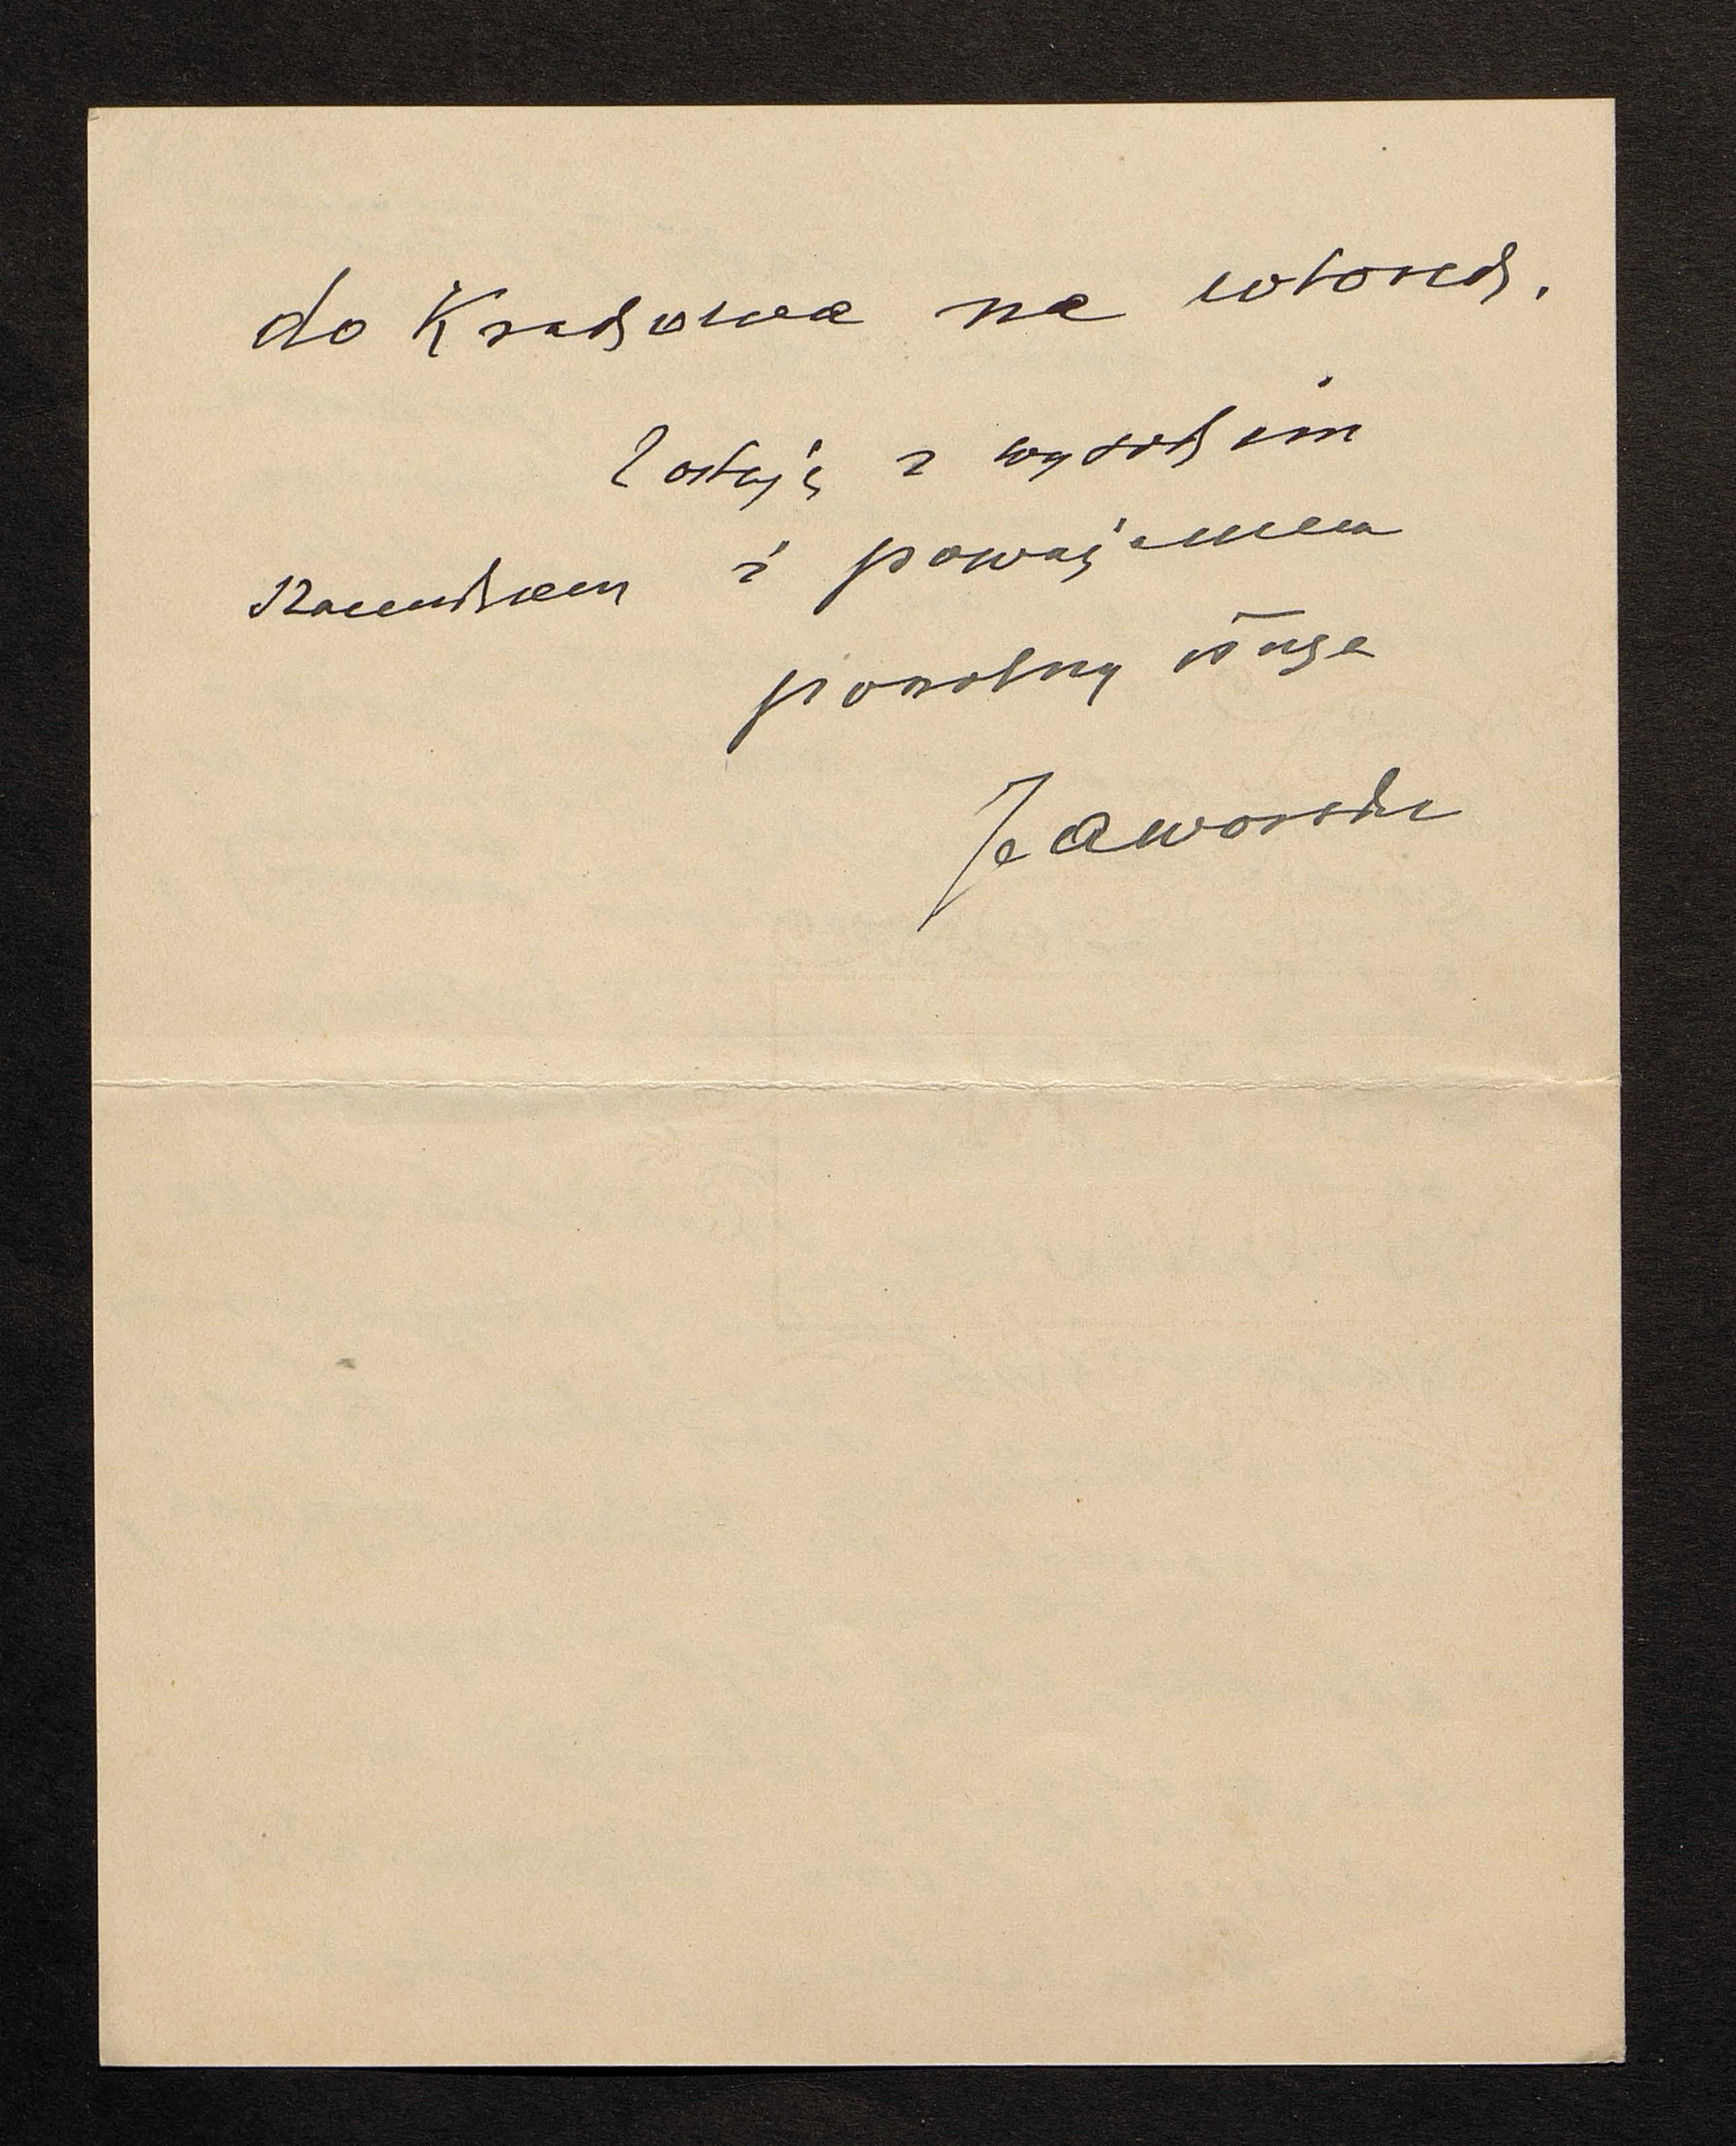 do Krakowa na wtorek.
Zostaję z wysokim
szacunkiem i poważaniem
powolny sługa
Jaworski